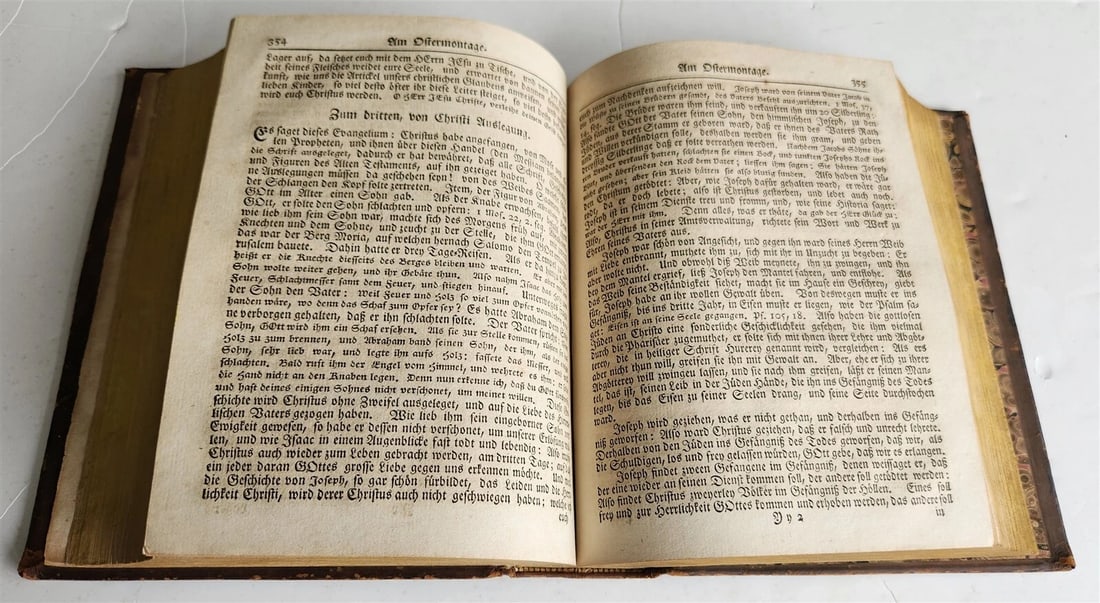 354 Am Ostermontage.
Lager auf, da setzet euch mit dem HErrn JEsu zu Tische, und
heit seines Fleisches weidet eure Seele, und erwartet von
kunft, wie uns die Artickel unsers christlichen Glaubens anweisen,
lieben Kinder, so viel desto öfter ihr diese Leiter steiget, so viel
wird euch Christus werden. O HErr JEsu Christe, verleihe
Zum dritten, von Christi Auslegung.
Es saget dieses Evangelium: Christus habe angefangen, von Mose
len Propheten, und ihnen über diesen Handel (den Messiam
die Schrift ausgeleget, dadurch er hat bewähret, daß alle Schrift,
und Figuren des Alten Testaments, auf ihn gezeiget haben. O
ne Auslegungen müssen da geschehen seyn! von des Weibes
der Schlangen den Kopf solte zertreten. Item, der Figur von
GOtt im Alter einen Sohn gab. Als der Knabe erwachsen,
GOtt, er solte den Sohn schlachten und opfern: 1 Mos. 22,
wie lieb ihm sein Sohn war, machte sich des Morgens früh auf,
Knechten und dem Sohne, und zeucht zu der Stelle, die ihm
das war der Berg Moria, auf welchen hernach Salomo den
rusalem bauete. Dahin hatte er drey Tage-Reisen. Als er da
heißt er die Knechte diesseits des Berges bleiben und warten. Er
Sohn wolte weiter gehen, und ihr Gebäte thun. Also nahm Isaac das
Feuer, Schlachtmesser samt dem Feuer, und stiegen hinauf. Unterweges
der Sohn den Vater: Weil Feuer und Holz so viel zum Opfer
handen wäre, wo denn das Schaf zum Opfer sey? Es hatte Abraham dem
ne verborgen gehalten, daß er ihn schlachten solte. Der Vater spricht:
Sohn, GOtt wird ihm ein Schaf ersehen. Als sie zur Stelle kommen,
Holz zu zum brennen, und Abraham band seinen Sohn, der ihm, als
Sohn, sehr lieb war, und legte ihn aufs Holz: fassete das Messer, und
schlachten. Bald ruft ihm der Engel vom Himmel, und wehrete es ihm:
die Hand nicht an den Knaben legen. Denn nun erkenne ich, daß du GOtt
und hast deines einigen Sohnes nicht verschonet, um meinet willen. Diese
schichte wird Christus ohne Zweifel ausgeleget, und auf die Liebe des
lischen Vaters gezogen haben. Wie lieb ihm sein eingeborner Sohn
Ewigkeit gewesen, so habe er dessen nicht verschonet, um unserer Erlösung
len, und wie Isaac in einem Augenblicke fast todt und lebendig: Also
Christus auch wieder zum Leben gebracht werden, am dritten Tage; auf
ein jeder daran GOttes grosse Liebe gegen uns erkennen möchte. Und
die Geschichte von Joseph, so gar schön fürbildet, das Leiden und die
lichkeit Christi, wird derer Christus auch nicht geschwiegen haben; welche
euch
Am Ostermontage. 355
euch zum Nachdenken aufzeichnen will. Joseph ward von seinem Vater Jacob in
die Wüste zu seinen Brüdern gesendt, des Vaters Befehl auszurichten. 1 Mos. 37,
seq. Die Brüder waren ihm feind, und verkauften ihn um 20 Silberling:
Also sandte GOtt der Vater seinen Sohn, den himmlischen Joseph, zu den
Juden, aus derer Stamm er geboren ward, daß er ihnen des Vaters Rath
und Willen verkündigen solle, deshalben werden sie ihm gram, und geben
dreyßig Silberlinge daß er solte verrathen werden. Nachdem Jacobs Söhne ih-
ren Bruder verkauft hatten, schlachten sie einen Bock, und tunkten Josephs Rock ins
Blut, und übersenden den Rock dem Vater; liessen ihm sagen: Sie hätten Joseph
nicht funden, aber sein Kleid hätten sie also blutig funden. Also haben die Jü-
den Christum getödtet: Aber, wie Joseph dafür gehalten ward, er wäre gar
todt, da er doch lebete; also ist Christus gestorben, und lebet auch noch.
Joseph ist in seinem Dienste treu und fromm, und, wie seine Historia saget:
war der HErr mit ihm. Denn alles, was er thäte, da gab der HErr Glück zu;
Also, Christus in seiner Amtsverwaltung, richtete sein Wort und Werk zu
Ehren seines Vaters aus.
Joseph war schön von Angesicht, und gegen ihn ward seines Herren Weib
mit Liebe entbrannt, muthete ihm zu, sich mit ihr in Unzucht zu begeben: Er
aber wolte nicht. Und obwohl diß Weib meynete, ihn zu zwingen, und ihn
bey dem Mantel ergrief, ließ Joseph den Mantel fahren, und entflohe. Als
das Weib seine Beständigkeit siehet, macht sie im Hause ein Geschrey, giebt
für, Joseph habe an ihr wollen Gewalt üben. Von deswegen muste er ins
Gefängniß, bis ins dritte Jahr, in Eisen muste er liegen, wie der Psalm sa-
get: Eisen ist an seine Seele gegangen, Ps. 105, 18. Also haben die gottlosen
Jüden an Christo eine sonderliche Geschicklichkeit gesehen, die ihm vielmal
durch die Pharisäer zugemuthet, er solte sich mit ihnen ihrer Lehre und Abgöt-
terey, die in heiliger Schrift Hurerey genannt wird, vergleichen: Als ers
aber nicht thun will, greifen sie ihn mit Gewalt an. Aber, ehe er sich zu ihrer
Abgötterey will zwingen lassen, und sie nach ihm greifen, läßt er seinen Man-
tel, das ist, seinen Leib in der Jüden Hände, die ihn ins Gefängniß des Todes
legen, bis das Eisen zu seiner Seelen drang, und seine Seite durchstochen
ward.
Joseph wird geziehen, was er nicht gethan, und derhalben ins Gefäng-
niß geworfen: Also ward Christus geziehen, daß er falsch und unrecht lehrete.
Derhalben von den Jüden ins Gefängniß des Todes geworfen, daß wir, als
die Schuldigen, los und frey gelassen würden, GOtt gebe, daß wir es erlangen.
Joseph findet zween Gefangene im Gefängniß, denen weissaget er, daß
der eine wieder an seinen Dienst kommen soll, der andere soll getödtet werden:
Also findet Christus zweyerley Völker im Gefängniß der Höllen. Eines soll
frey und zur Herrlichkeit GOttes kommen und erhoben werden, das andere soll
Y y 2 in